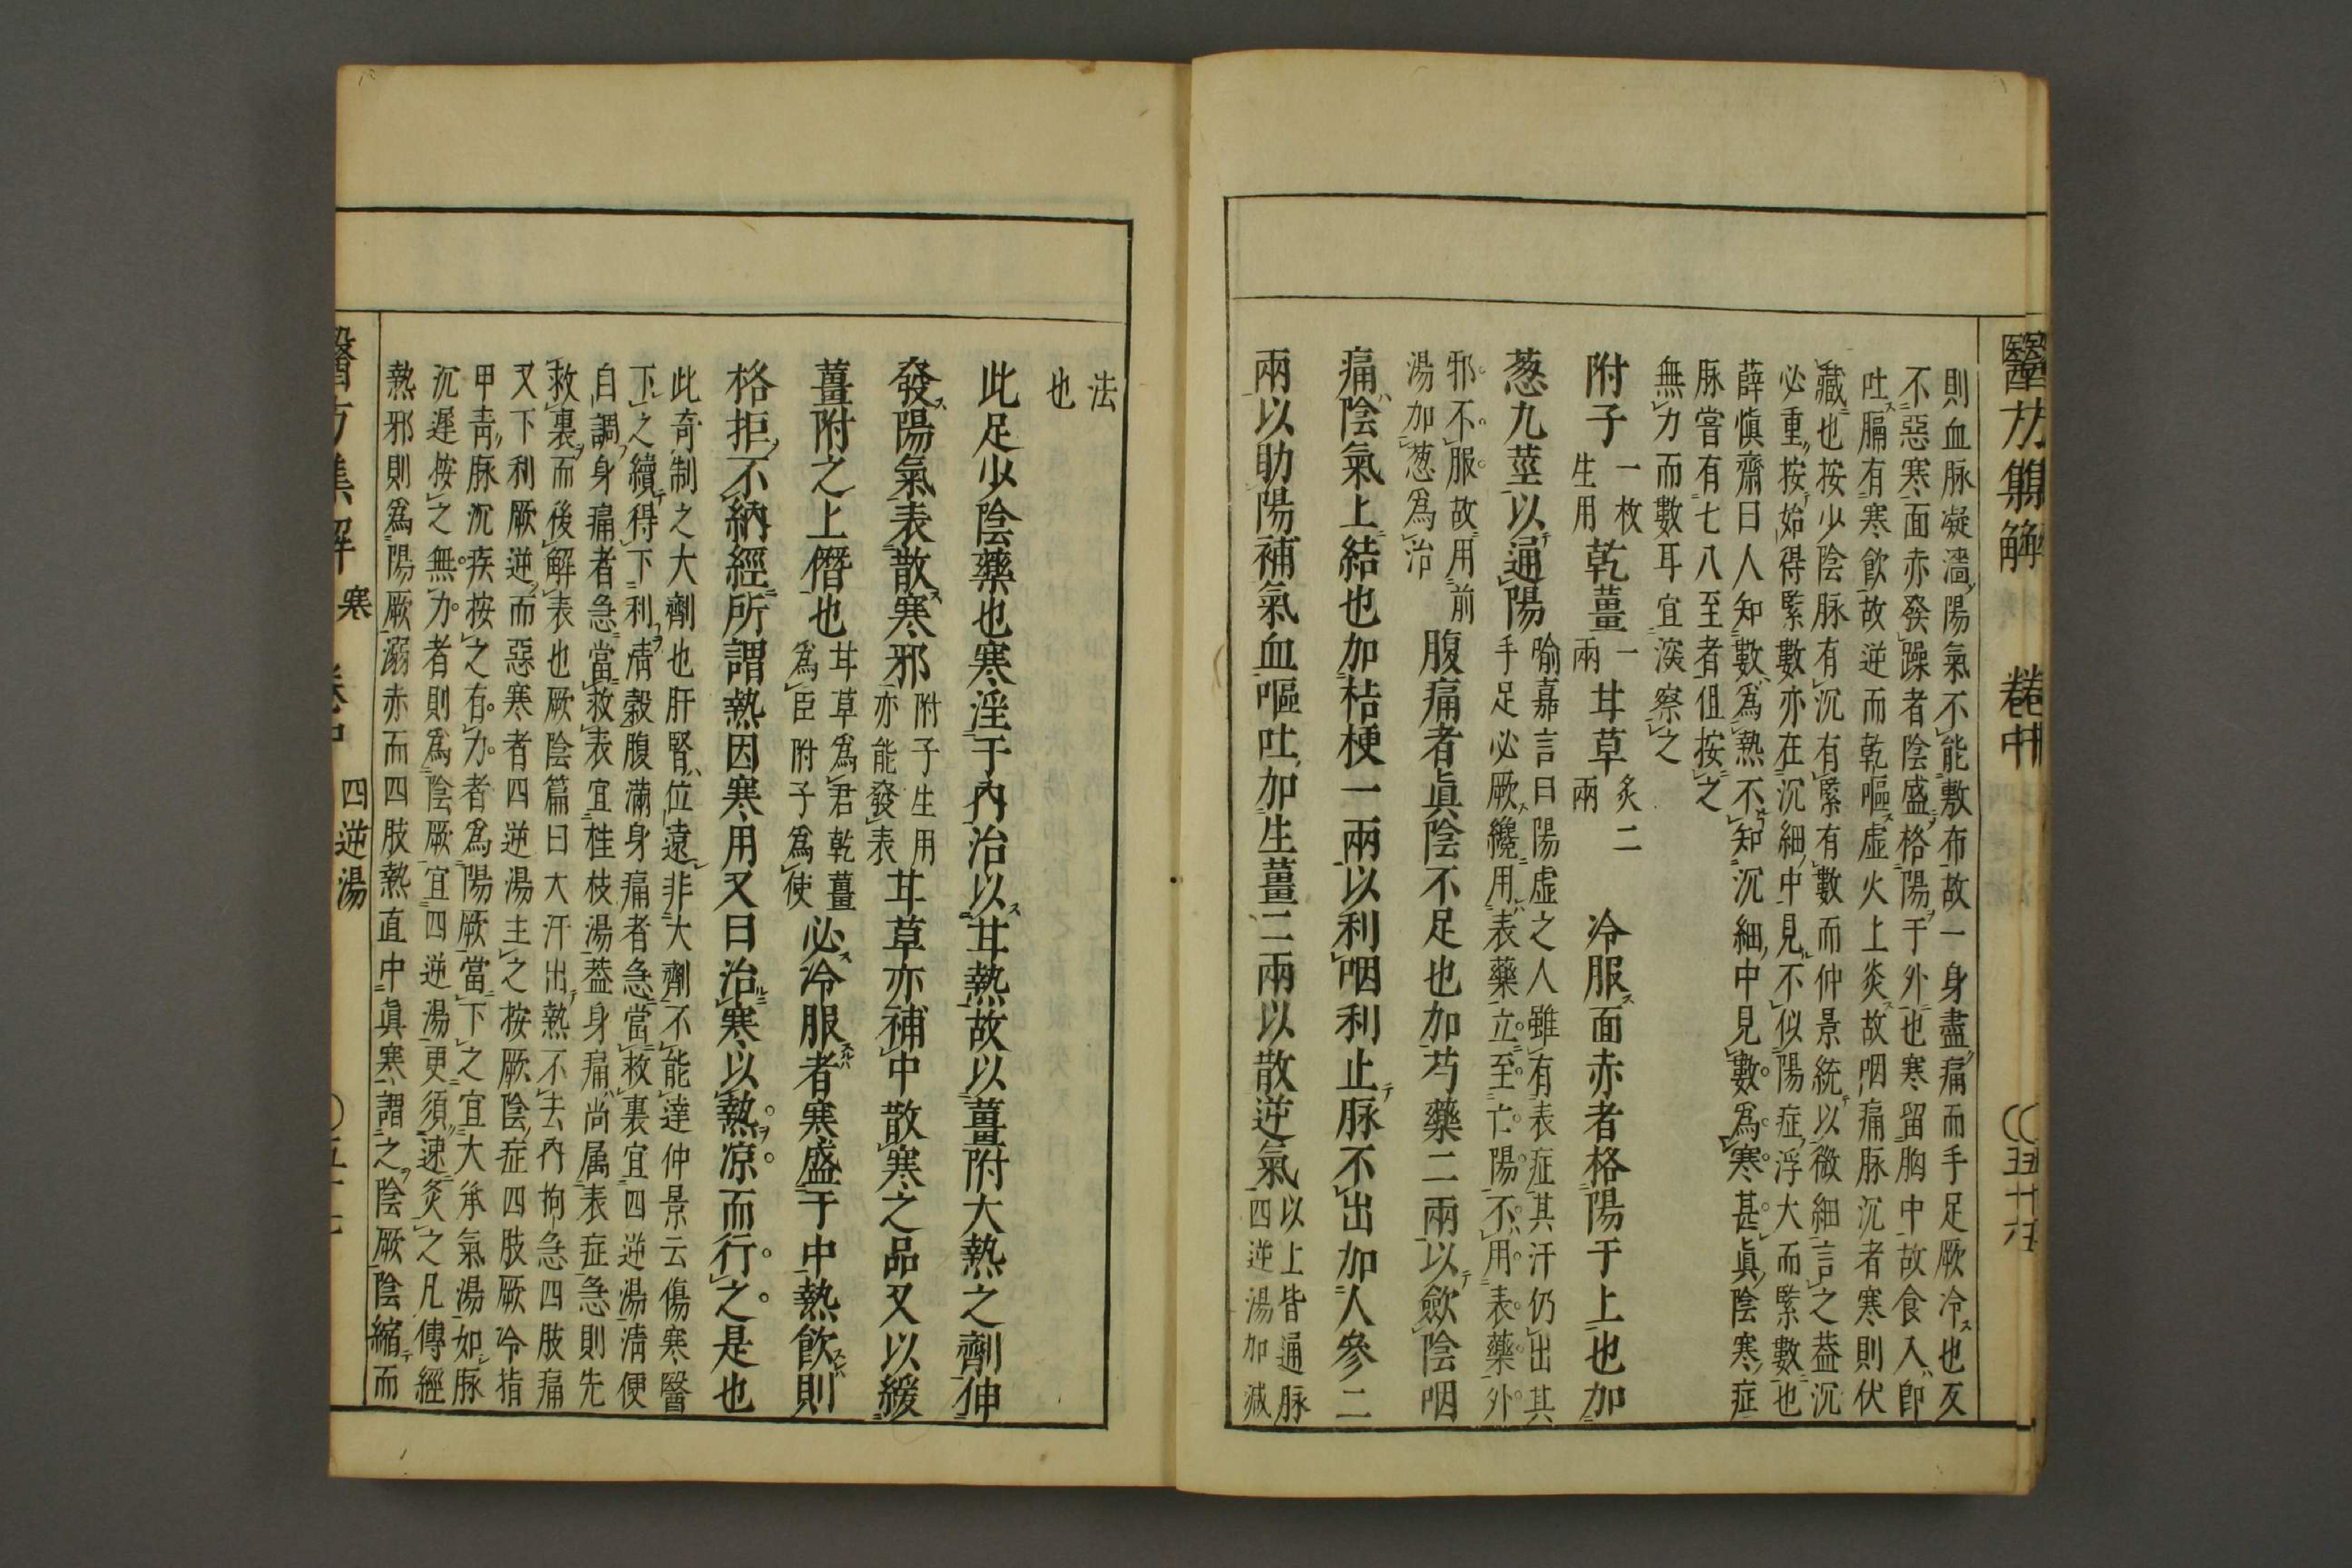 醫方集解 卷中
則血脉凝濇陽氣不能敷布故一身盡痛而手足厥冷也又
不惡寒面赤發躁者陰盛格陽于外也寒留胸中故食入卽
吐膈有寒飲故逆而乾嘔虛火上炎故咽痛脉沉者寒則伏
藏也按少陰脉有沉有緊有數而仲景統以微細言之葢沉
必重按始得緊數亦在沉細中見不似陽症浮大而緊數也
薛愼齋曰人知數爲熱不知沉細中見數爲寒甚眞陰寒症
脉嘗有七八至者但按之
無力而數耳宜深察之
附子一枚生用乾薑一兩甘草炙二兩 冷服面赤者格陽于上也加
葱九莖以通陽喻嘉言曰陽虛之人雖有表症其汗仍出其
手足必厥纔用表藥立至亡陽不用表藥外
邪不服故用前
湯加葱爲治腹痛者眞陰不足也加芍藥二兩以斂陰咽
痛陰氣上結也加桔梗一兩以利咽利止脉不出加人參二
兩以助陽補氣血嘔吐加生薑二兩以散逆氣以上皆通脉
四逆湯加減
法
也
此足少陰藥也寒淫于內治以甘熱故以薑附大熱之劑伸
發陽氣表散寒邪附子生用亦能發表甘草亦補中散寒之品又以緩
薑附之上僭也甘草爲君乾薑爲臣附子爲使必冷服者寒盛于中熱飲則
格拒不納經所謂熱因寒用又曰治寒以熱凉而行之是也
此奇制之大劑也肝腎位遠非大劑不能達仲景云傷寒醫
下之續得下利淸穀腹滿身痛者急當救裏宜四逆湯淸便
自調身痛者急當救表宜桂枝湯葢身痛尚属表症急則先
救裏而後解表也厥陰篇曰大汗出熱不去內拘急四肢痛
又下利厥逆而惡寒者四逆湯主之按厥陰症四肢厥冷指
甲青脉沉疾按之有力者爲陽厥當下之宜大承氣湯如脉
沉遲按之無力者則爲陰厥宜四逆湯更須速灸之凡傳經
熱邪則爲陽厥溺赤而四肢熱直中眞寒謂之陰厥陰縮而
醫方集解 寒 卷中 四逆湯